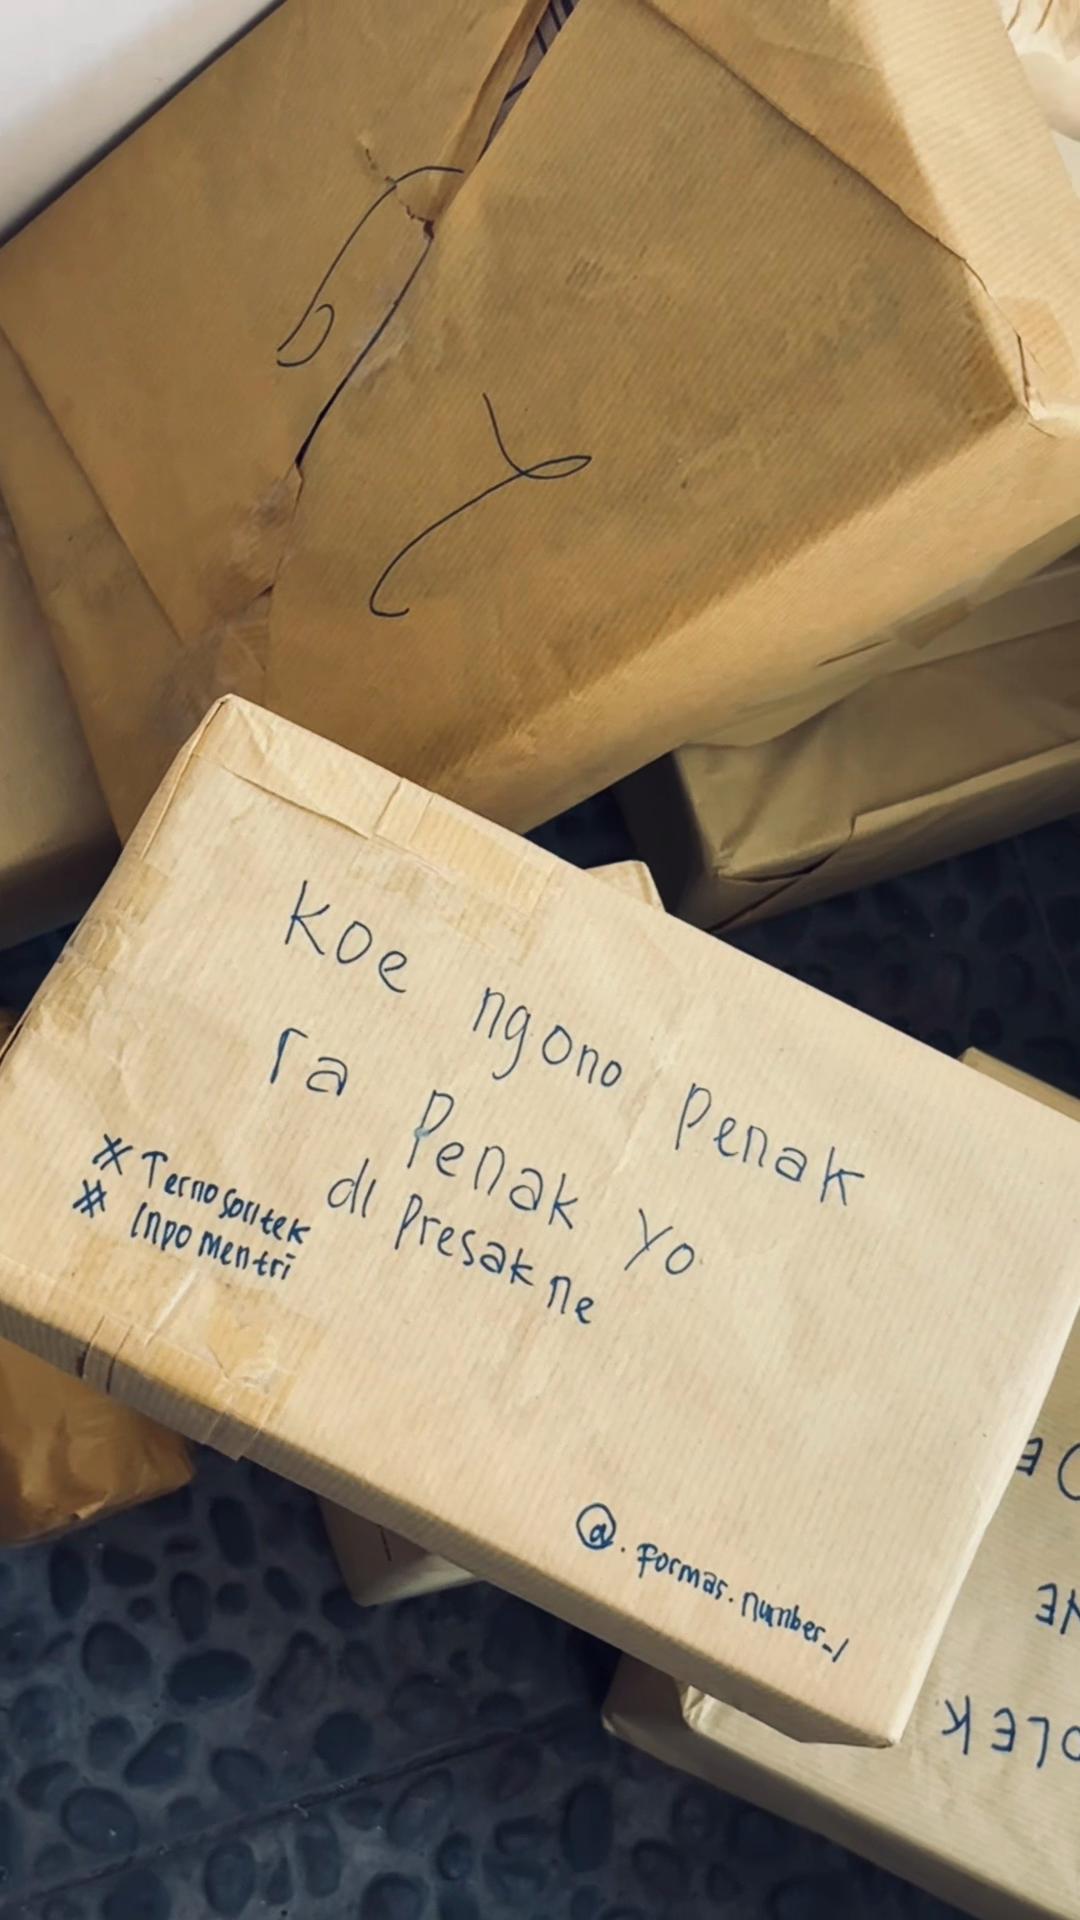 Koe ngono Penak
ra Penak yo
di Presak ne
# Ternosolltek
# Inpo mentri
@.formas.number_1
OLEK